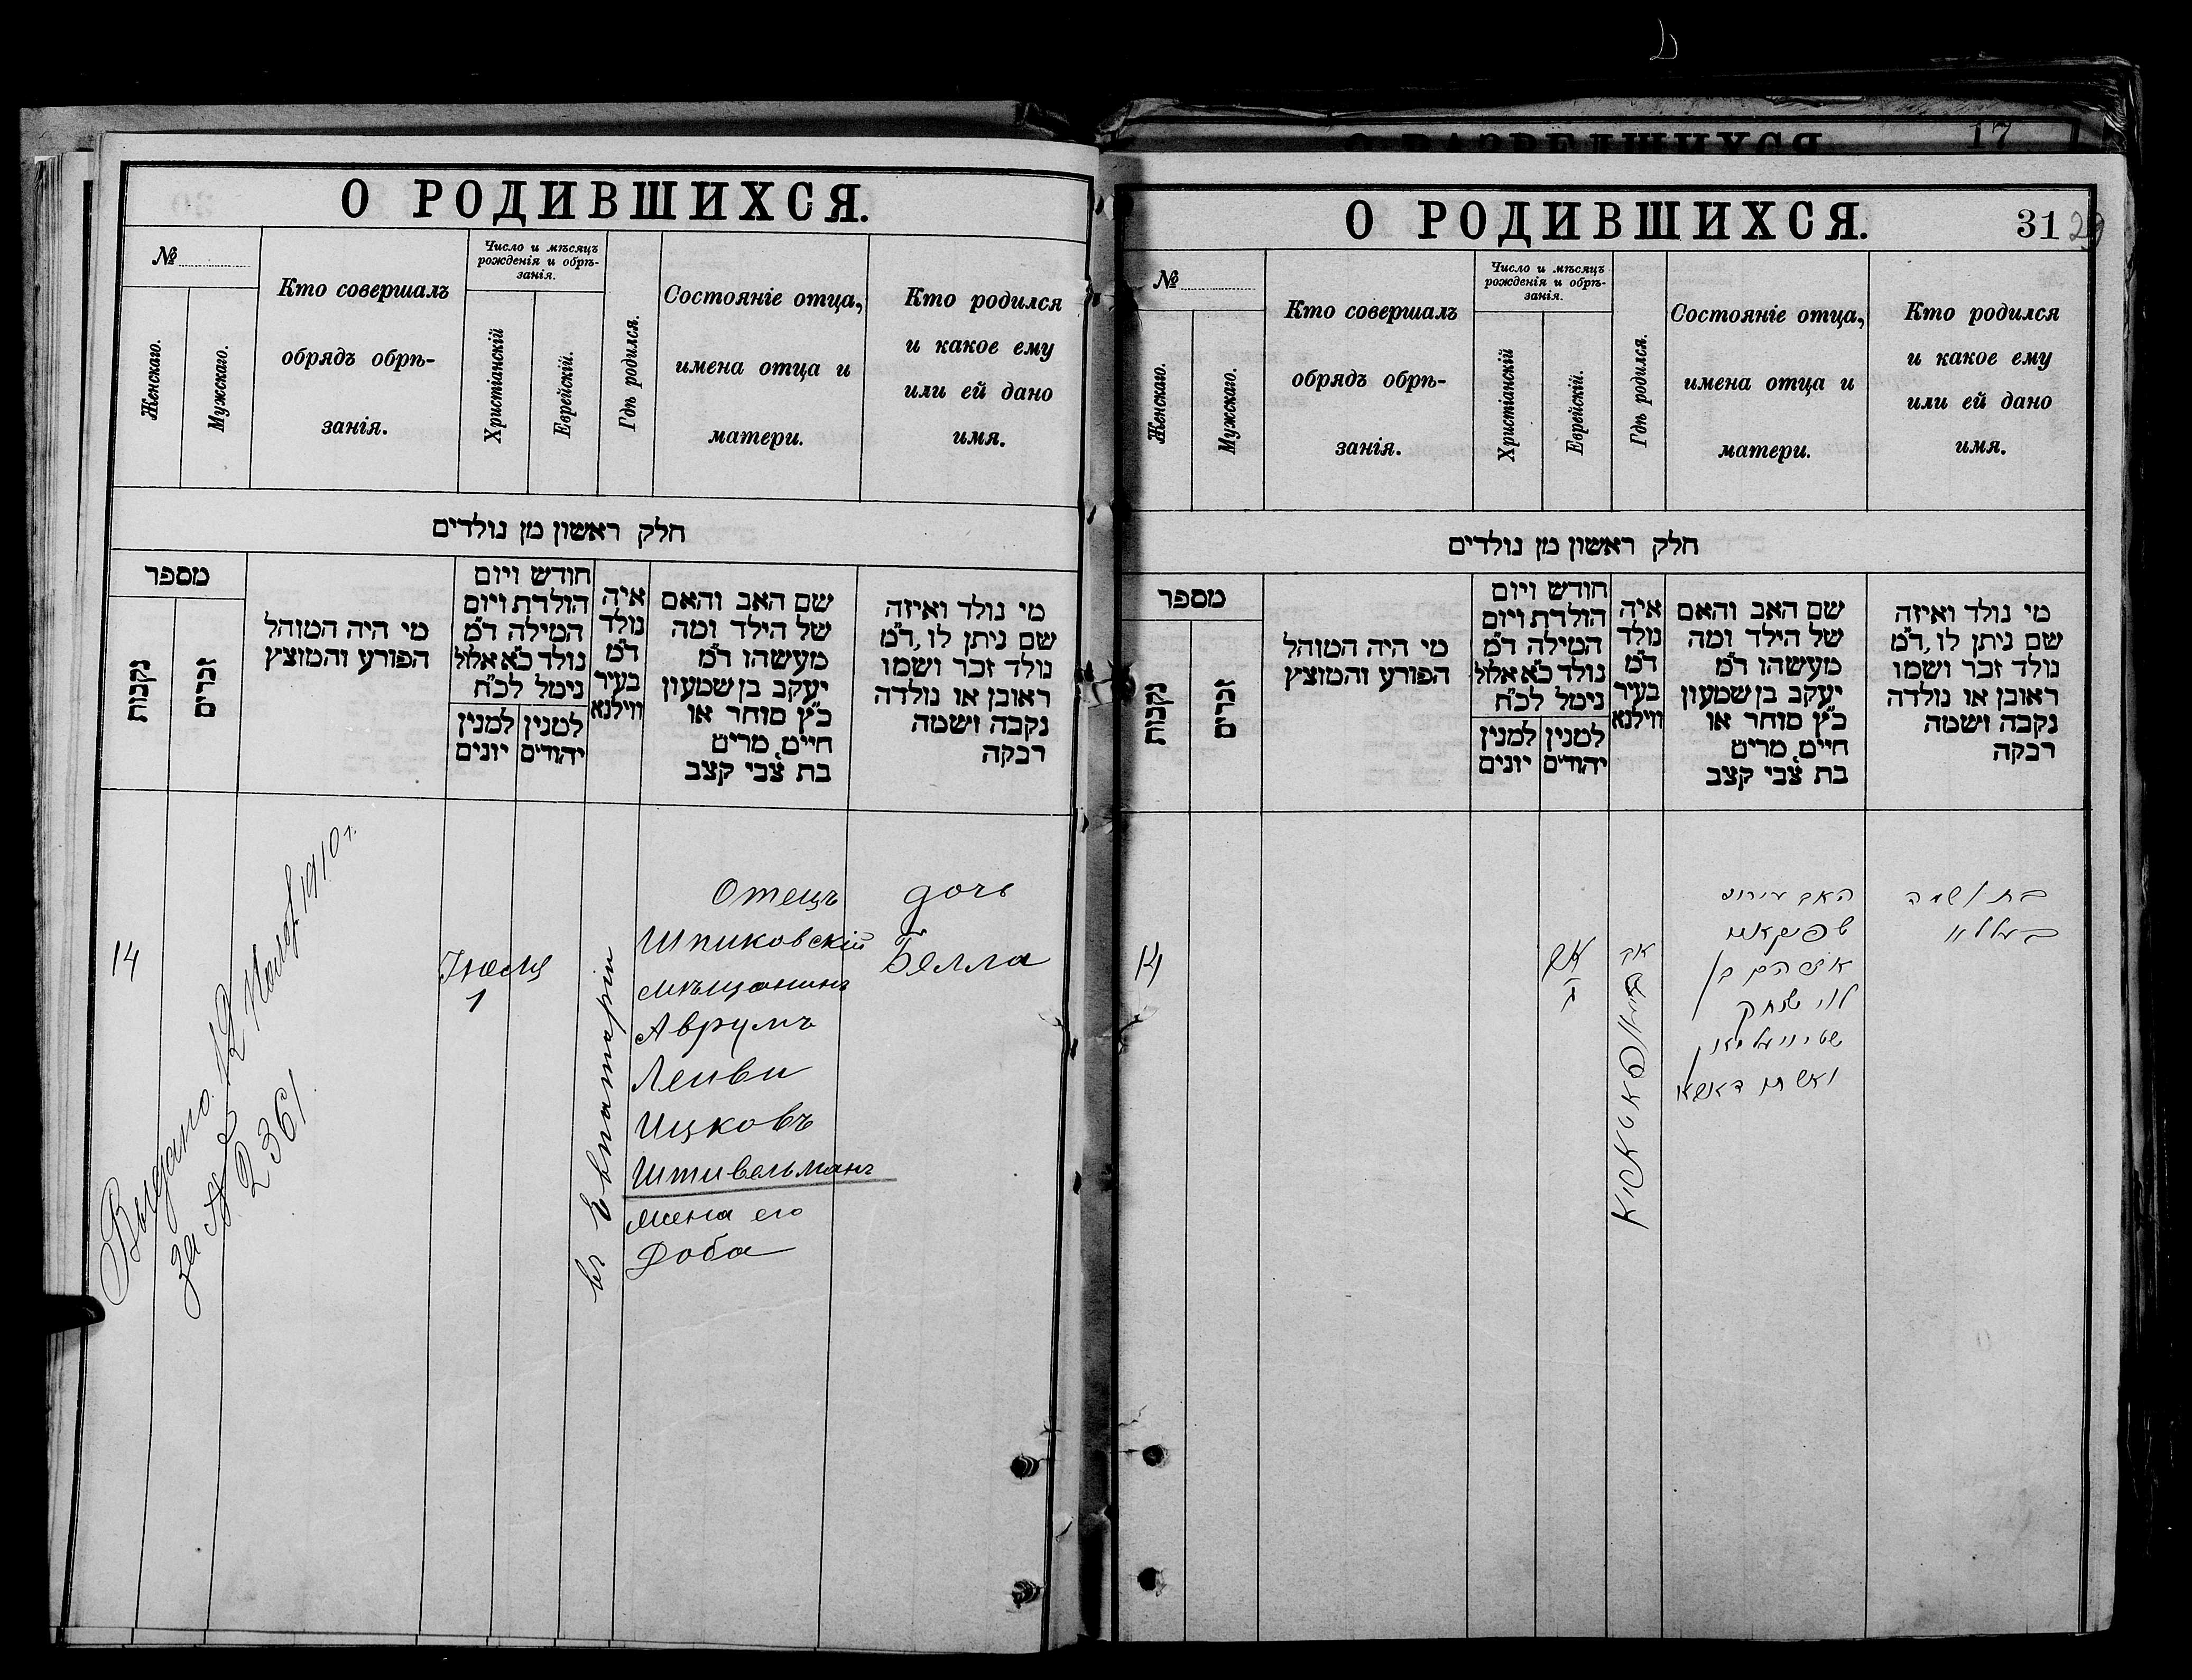 О РОДИВШИХСЯ.
№
Женскаго.
Мужскаго.
Кто совершалъ
обрядъ обрѣ-
занія.
Число и мѣсяцъ
рожденія и обрѣ-
занія.
Христіанскій
Еврейскій.
Гдѣ родился.
Состояніе отца,
имена отца и
матери.
Кто родился
и какое ему
или ей дано
имя.
חלק ראשון מן נולדים
מספר
נקבות
זכרים
מי היה המוהל
הפורע והמוצץ
חודש ויום
הולדת ויום
המילה ד"מ
נולד כ"א אלול
נימל לכ"ח
למנין יונים
למנין יהודים
איה
נולד
ד"מ
בעיר
ווילנא
שם האב והאם
של הילד ומה
מעשהו ד"מ
יעקב בן שמעון
כ"ץ סוחר או
חיים, מרים
בת צבי קצב
מי נולד ואיזה
שם ניתן לו, ד"מ
נולד זכר ושמו
ראובן או נולדה
נקבה ושמה
רבקה
14
Выдано 12 1910 г.
за № 2361
Іюля
1
въ Евпаторіи
Отецъ
Шпиковскій
мѣщанинъ
Аврумъ
Лейви
Ицковъ
Штивельманъ
жена его
Доба
дочь
Белла
О РОДИВШИХСЯ.
31 29
№
Женскаго.
Мужскаго.
Кто совершалъ
обрядъ обрѣ-
занія.
Число и мѣсяцъ
рожденія и обрѣ-
занія.
Христіанскій
Еврейскій.
Гдѣ родился.
Состояніе отца,
имена отца и
матери.
Кто родился
и какое ему
или ей дано
имя.
חלק ראשון מן נולדים
מספר
נקבות
זכרים
מי היה המוהל
הפורע והמוצץ
חודש ויום
הולדת ויום
המילה ד"מ
נולד כ"א אלול
נימל לכ"ח
למנין יונים
למנין יהודים
איה
נולד
ד"מ
בעיר
ווילנא
שם האב והאם
של הילד ומה
מעשהו ד"מ
יעקב בן שמעון
כ"ץ סוחר או
חיים, מרים
בת צבי קצב
מי נולד ואיזה
שם ניתן לו, ד"מ
נולד זכר ושמו
ראובן או נולדה
נקבה ושמה
רבקה
14
האב
אברהם בן
לוי יצחק
שטיוועלמאן
בת ושמה
בעללא
17